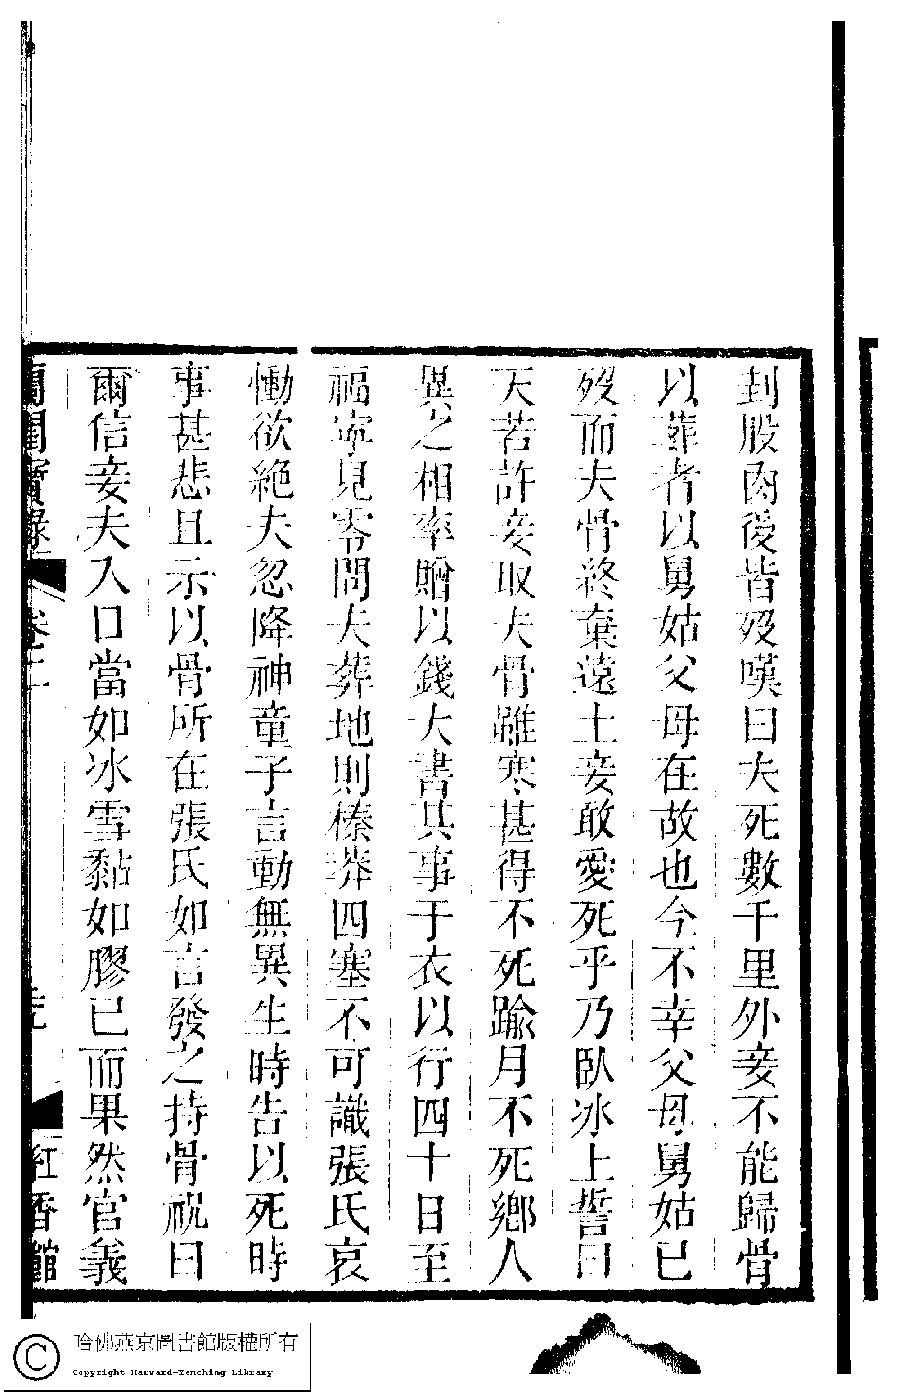 刲股肉後皆歿嘆曰夫死數千里外妾不能歸骨
以葬者以舅姑父母在故也今不幸父母舅姑已
歿而夫骨終棄遠土妾敢愛死乎乃臥冰上誓曰
天若許妾取夫骨雖寒甚得不死踰月不死鄉人
異之相率贈以錢大書其事于衣以行四十日至
福寧見零問夫葬地則榛莽四塞不可識張氏哀
慟欲絶夫忽降神童子言動無異生時告以死時
事甚悲且示以骨所在張氏如言發之持骨祝曰
爾信妾夫入口當如冰雪黏如膠已而果然官義
蘭閨寶錄 卷二 紅香館
哈佛燕京圖書館版權所有
Copyright Harvard-Yenching Library